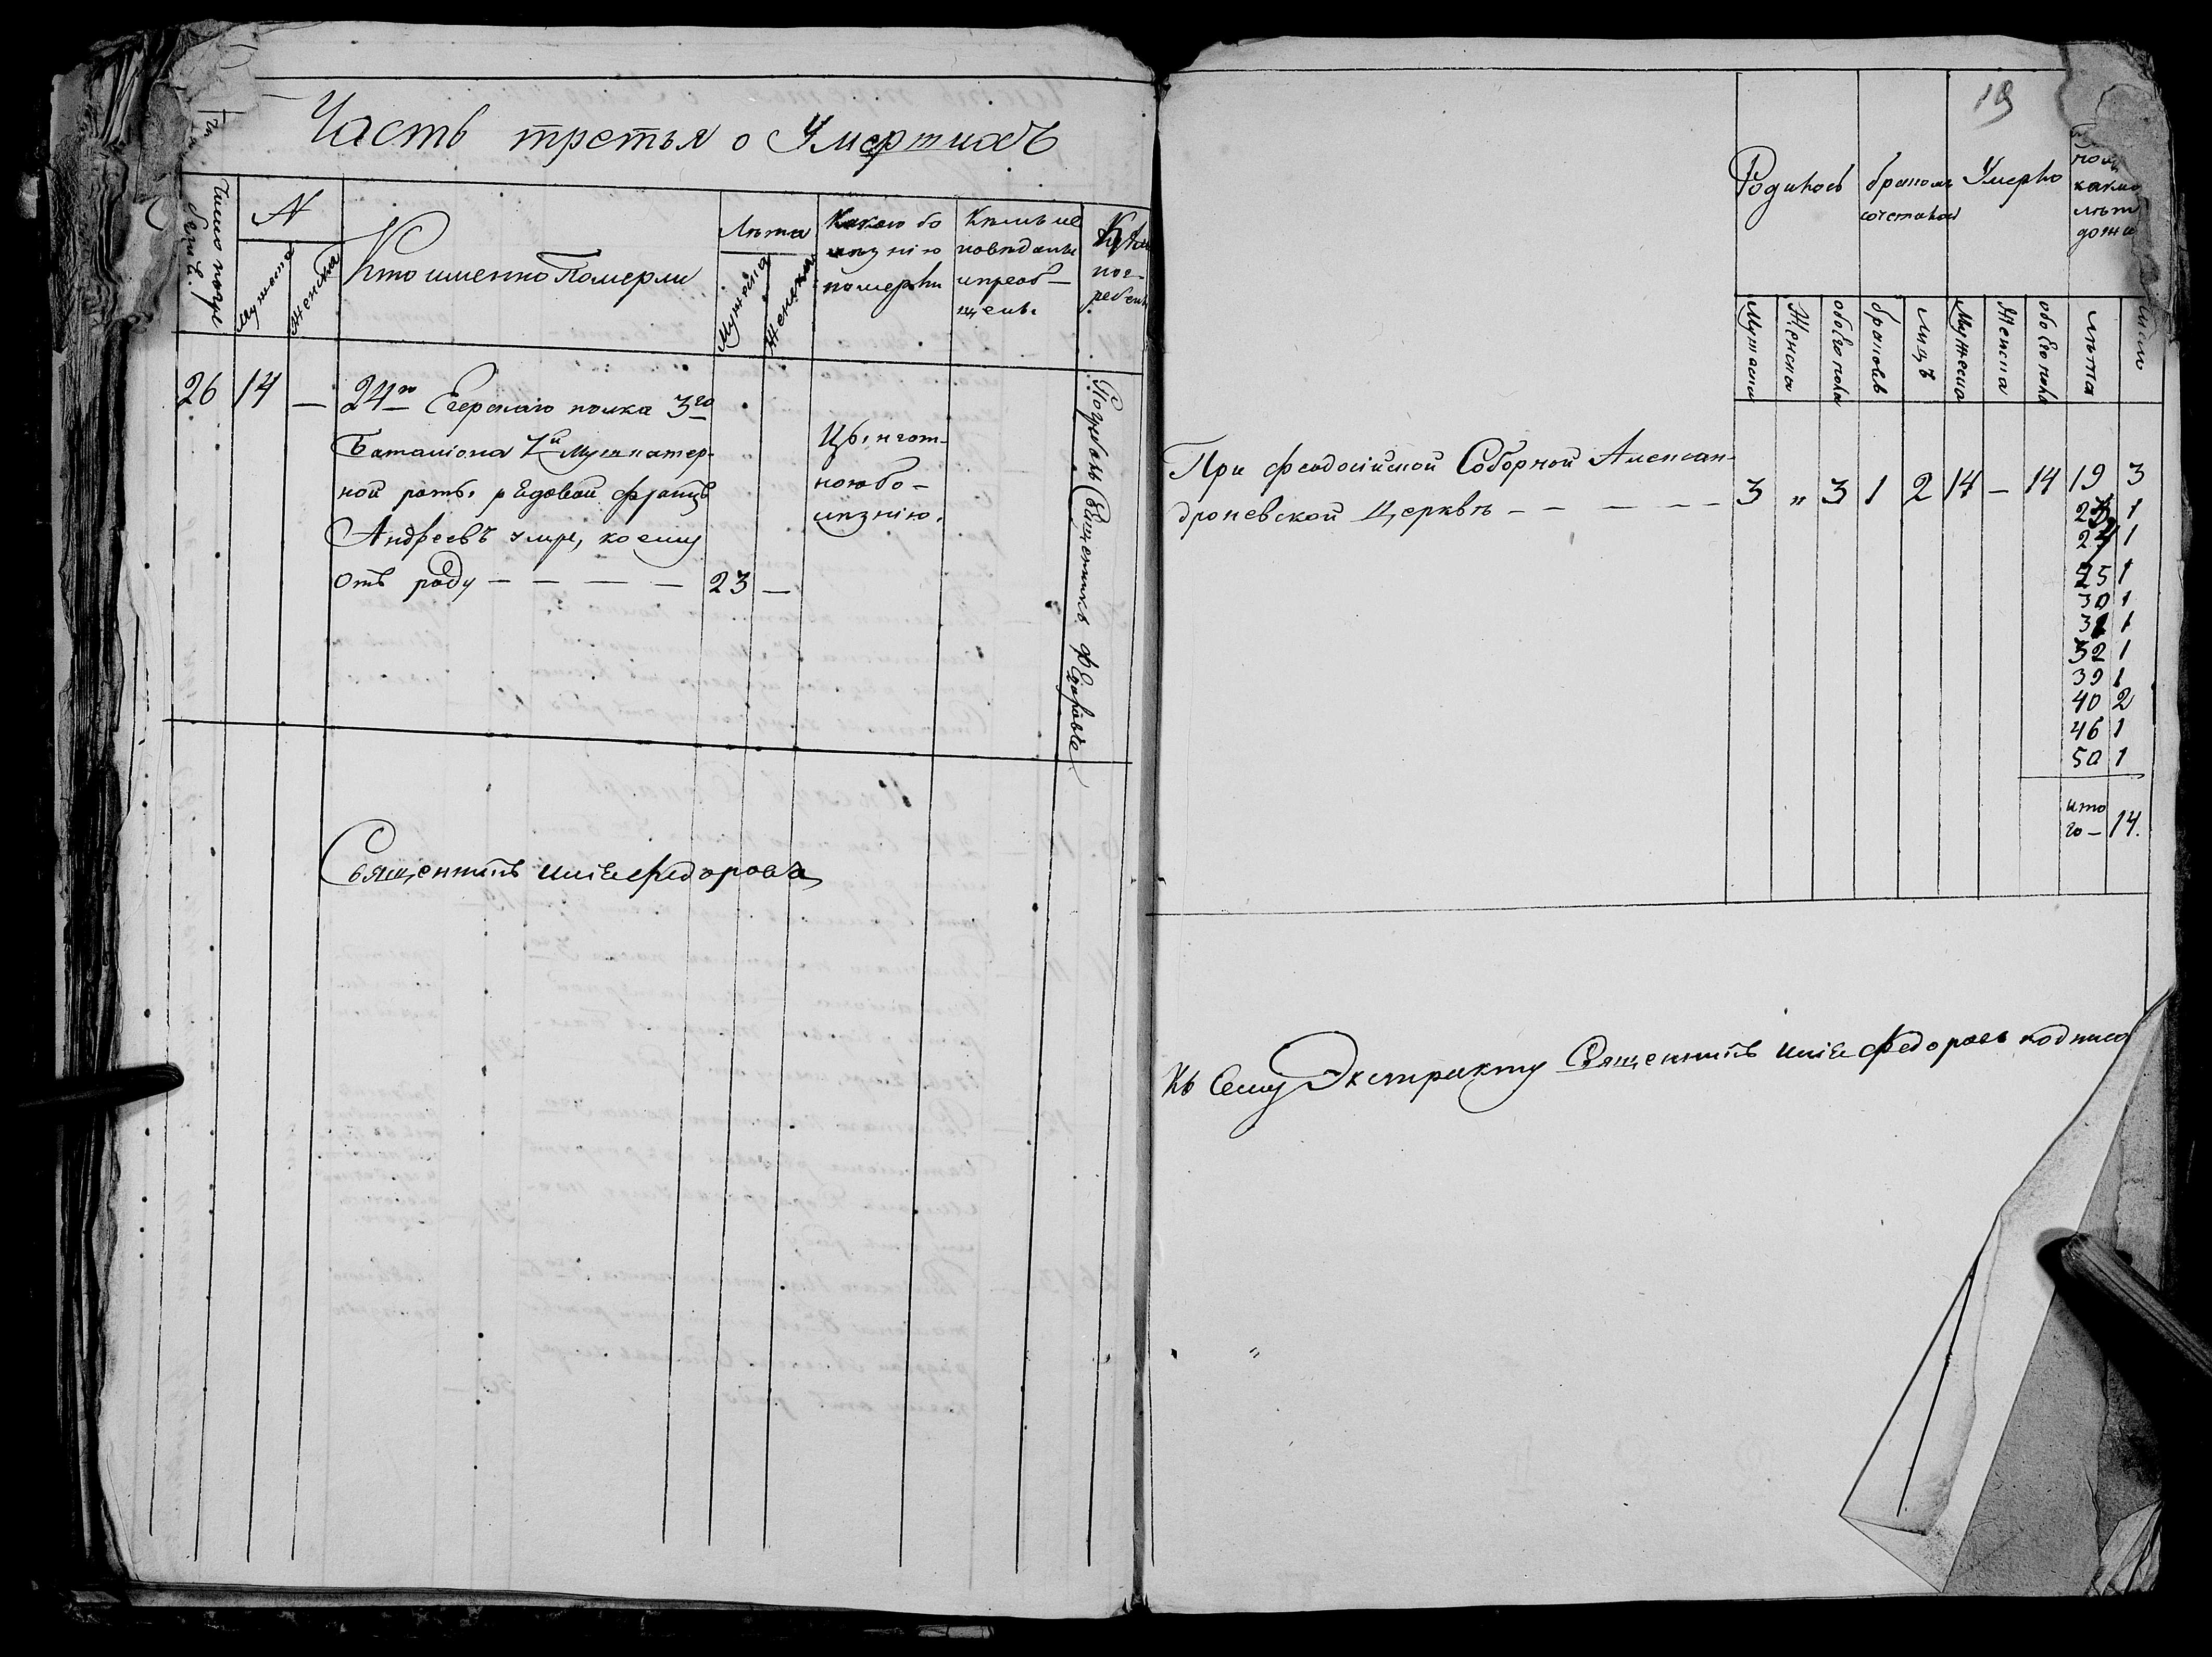 Часть третья о Умертихъ
Число погре
бенiе.
N
Мужеска
Женска
Кто именно Померли
Лѣта
Мужеска
Женска
Какою бо
лѣзнiю
померли
Кѣмъ ис
повѣданы
и прiоб-
щены.
пог-
ребены
26 14 — 24го Егерскаго полка 3го
Баталiона 7й Мушкатер-
ной роты рядовой Францъ
Андреевъ умре, коему
отъ роду — — — — 23 —
Цынгот-
ною бо-
лѣзнiю.
Погребалъ Священникъ Федоровъ
Священникъ Илiя Федоровъ
19
Родилось
бракомъ
сочеталось
Умерло
какихъ
лѣтъ
Мужеска
Женска
обоего пола
браковъ
лицъ
Мужеска
Женска
обоего пола
лѣта
число
При Феодосiйской Соборной Алексан-
дроневской Церквѣ — — — — —
3 " 3 1 2 14 — 14 19 3
23 1
24 1
25 1
30 1
31 1
32 1
39 1
40 2
46 1
50 1
ито
го — 14.
Къ Сему Экстракту Священникъ Илiя Федоровъ подписа